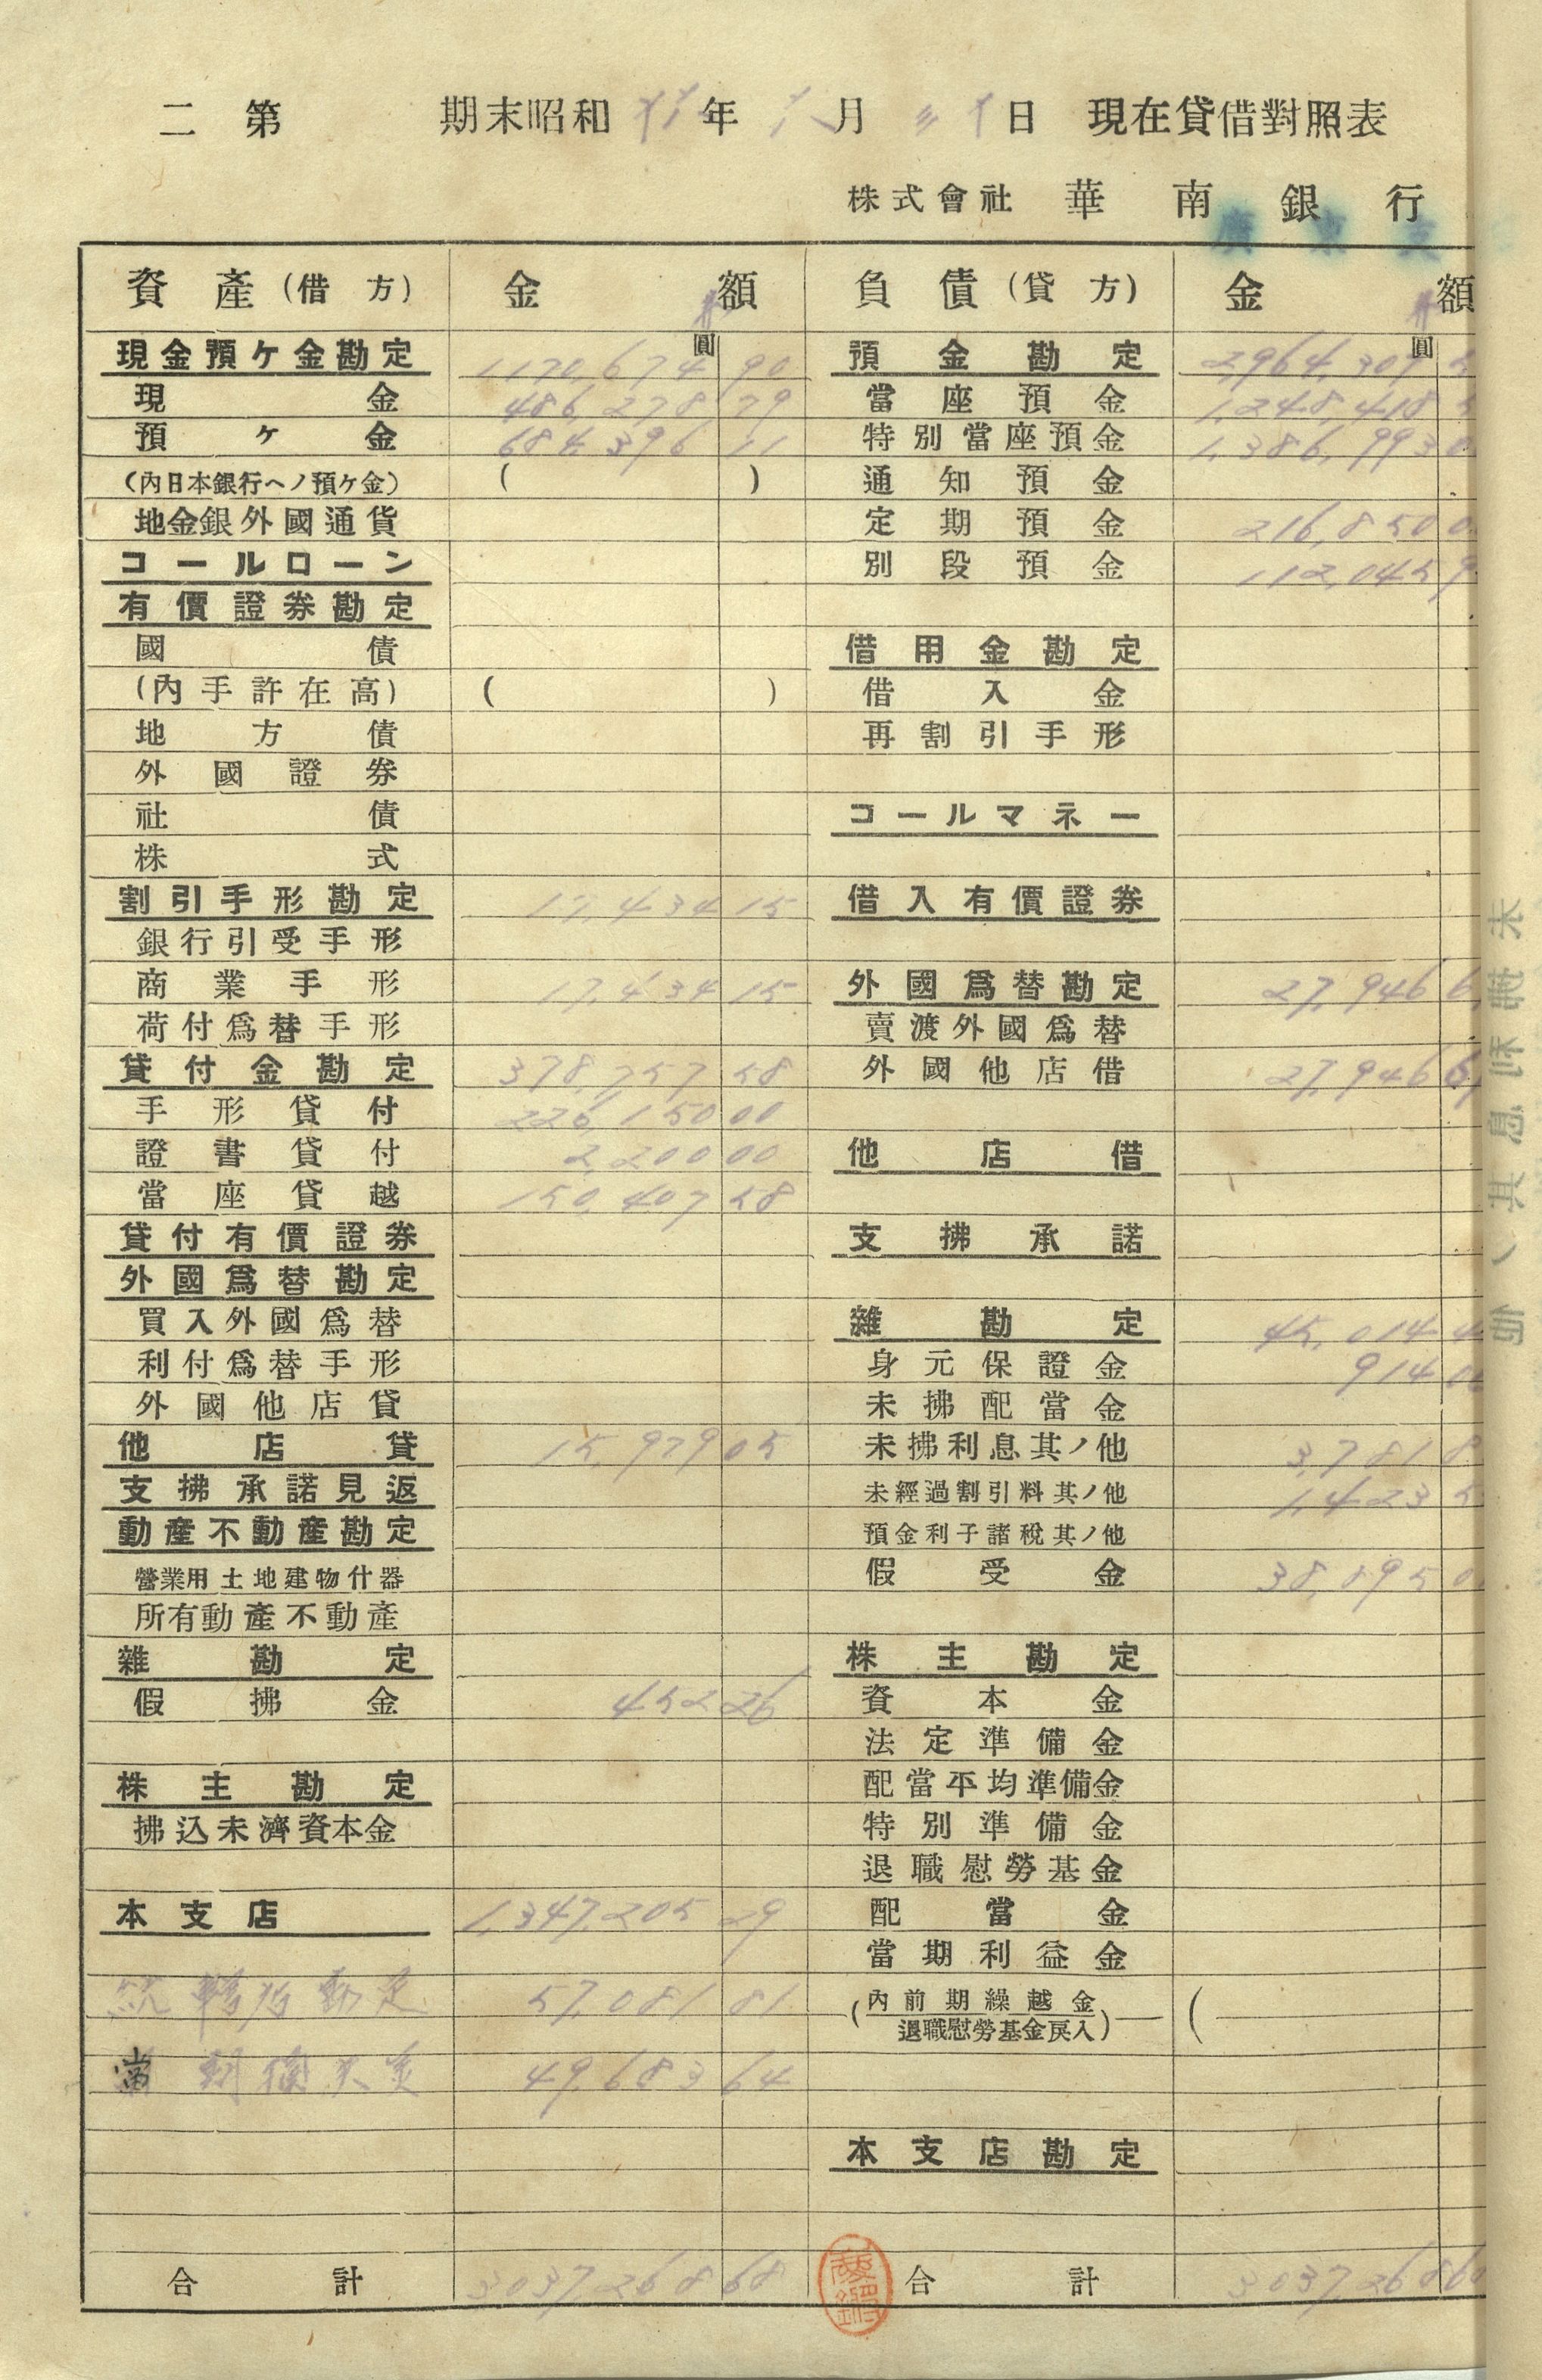 二 第 期末昭和 年 月 日 現在貸借對照表
株式會社 華南銀行
資產(借方) 金額 負債(貸方) 金額
圓 圓
現金預ケ金勘定 1,170,674 90 預金勘定 2,964,307
現金 486,278 79 當座預金 1,248,418
預ケ金 684,396 11 特別當座預金 1,386,993
(內日本銀行ヘノ預ケ金) ( ) 通知預金
地金銀外國通貨 定期預金 216,850 0
コールローン 別段預金 112,045 9
有價證券勘定
國債 借用金勘定
(內手許在高) ( ) 借入金
地方債 再割引手形
外國證券
社債 コールマネー
株式
割引手形勘定 17,434 15 借入有價證券
銀行引受手形
商業手形 17,434 15 外國爲替勘定 27,946 6
荷付爲替手形 賣渡外國爲替
貸付金勘定 378,757 58 外國他店借 27,946 6
手形貸付 226,150 00
證書貸付 2,200 00 他店借
當座貸越 150,407 58
貸付有價證券 支拂承諾
外國爲替勘定
買入外國爲替 雜勘定 45,014 4
利付爲替手形 身元保證金 914 00
外國他店貸 未拂配當金
他店貸 15,979 05 未拂利息其ノ他 3,781 8
支拂承諾見返 未經過割引料其ノ他 1,423 5
動產不動產勘定 預金利子諸稅其ノ他
營業用土地建物什器 假受金 38,895 0
所有動產不動產
雜勘定 株主勘定
假拂金 452 26 資本金
法定準備金
株主勘定 配當平均準備金
拂込未濟資本金 特別準備金
退職慰勞基金
本支店 1,347,205 29 配當金
當期利益金
勘定 57,081 81 (內前期繰越金 退職慰勞基金戾入) (
當期損失金 49,683 64
本支店勘定
合計 3,037,268 68 合計 3,037,268 6